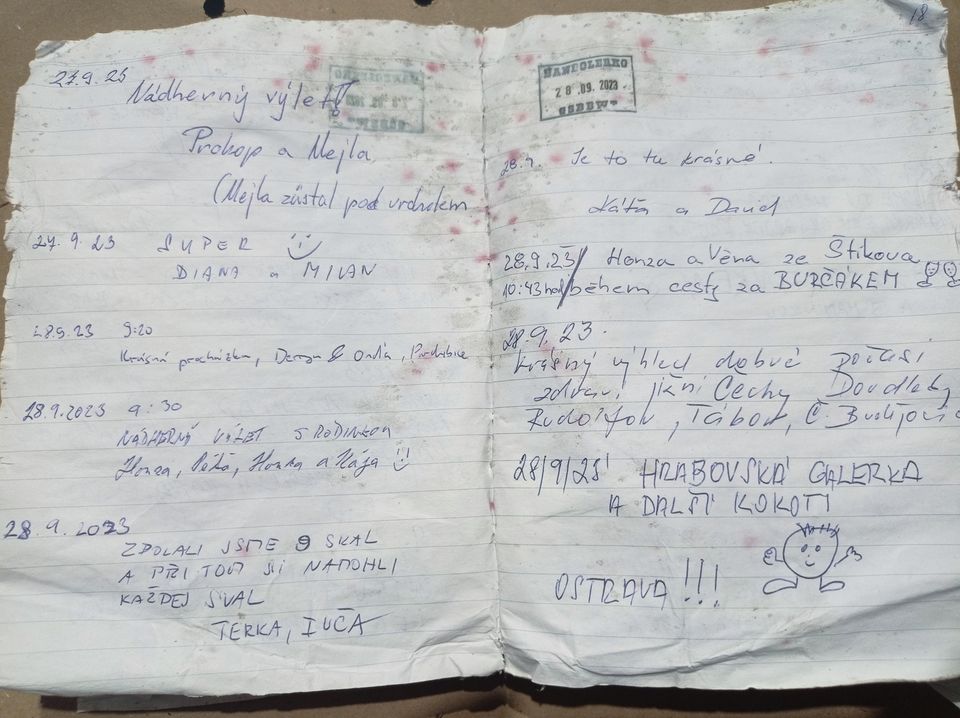 27.9.23
Nádherný výlet!
Prokop a Mejla
(Mejla zůstal pod vrcholem
27.9.23 SUPER
DIANA a MILAN
28.9.23 9:20
Krásná procházka, Ondra, Pardubice
28.9.2023 9:30
NÁDHERNÝ VÝLET S RODINKOU
Honza, Péťa, Honza a Kája
28.9.2023
ZDOLALI JSME 9 SKAL
A PŘI TOM SI NAMOHLI
KAŽDEJ SVAL
TERKA, IUČA
18
28.09.2023
28.9. Je to tu krásné.
Káťa a David
28.9.23 Honza a Věna ze Štikova
10:43 hod během cesty za BURČÁKEM
28.9.23.
Krásný výhled dobré počasí
zdraví jižní Čechy Doudleby
Rudolfov, Tábor, Č. Budějovice
28/9/23 HRABOVSKÁ GALERKA
A DALŠÍ KOKOTI
OSTRAVA!!!